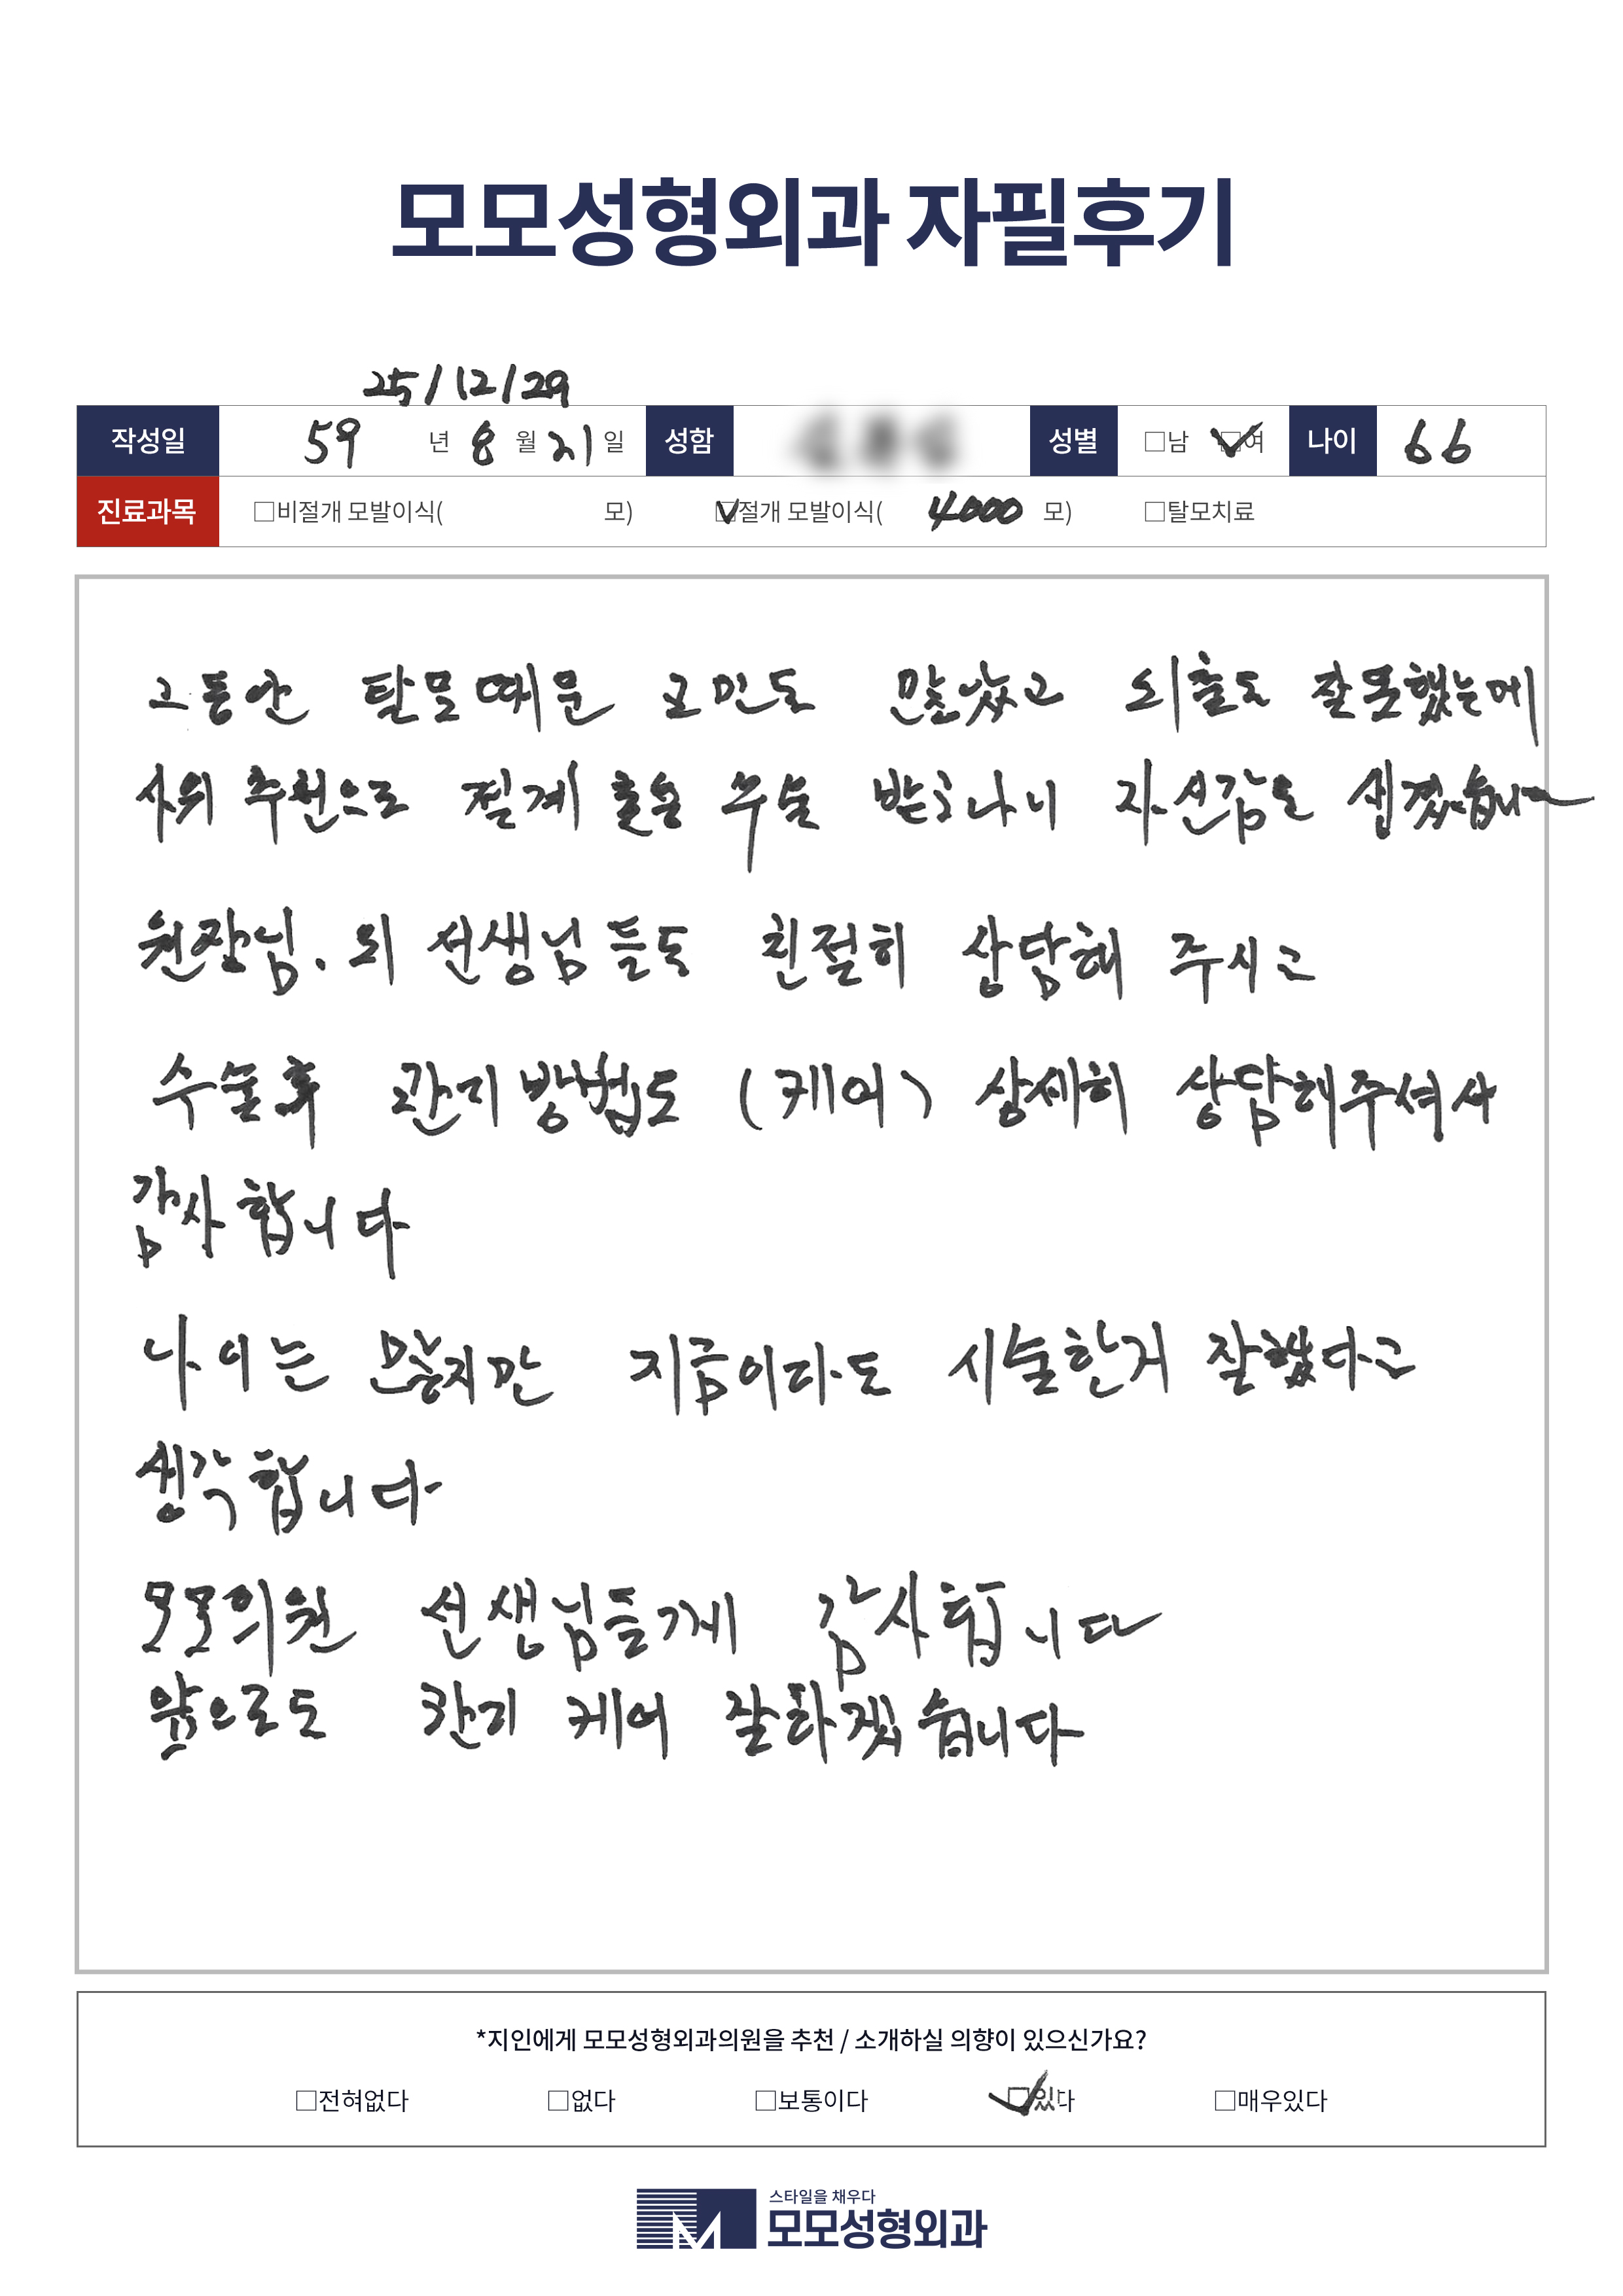 모모성형외과 자필후기
25/12/29
작성일 59 년 8 월 21 일 성함 성별 □남 ☑여 나이 66
진료과목 □비절개 모발이식( 모) ☑절개 모발이식( 4000 모) □탈모치료
그동안 탈모때문 고민도 많았고 외출도 잘못했는데
사위 추천으로 절게 수술 받하나니 자신감을 생겼습니다
원장님. 외 선생님들도 친절히 상담해 주시고
수술후 관지방법도 (케어) 상세히 상담해주셔서
감사합니다
나이는 많지만 지금이라도 시술한거 잘했다고
생각합니다
모모의원 선생님들게 감사합니다
앞으로도 관리 케어 잘하겠습니다
*지인에게 모모성형외과의원을 추천 / 소개하실 의향이 있으신가요?
□전혀없다 □없다 □보통이다 ☑있다 □매우있다
스타일을 채우다
모모성형외과